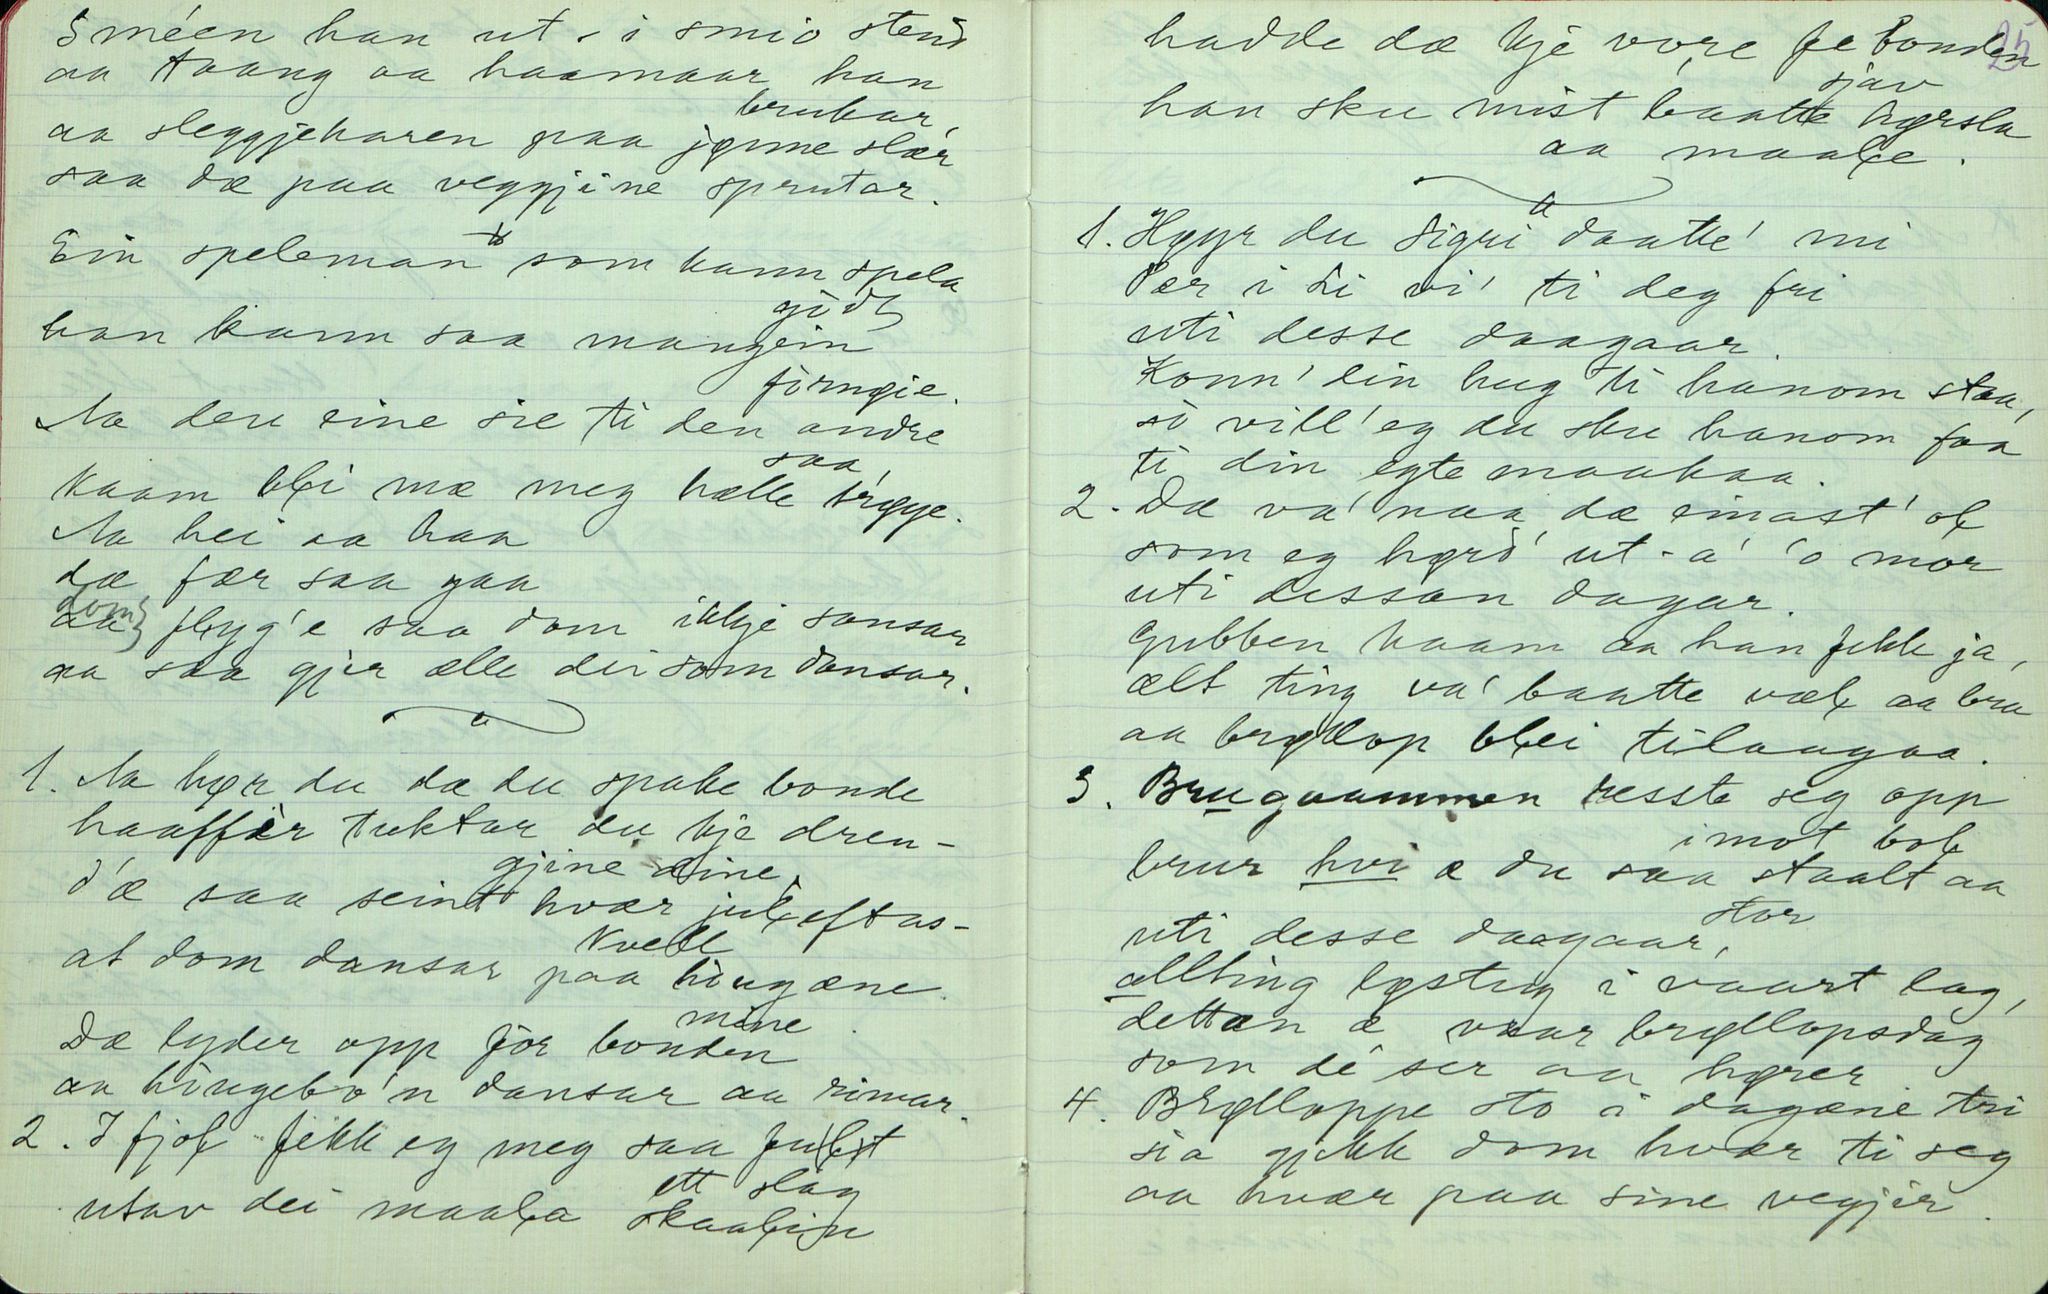 Sméen han ut - i smio stend
aa taang aa haamaar han
brukar,
aa sleggjekaren paa jønne slær
saa dæ paa veggjine sprutar.
Ein speleman som kann spela
gjidt
han kann saa mangein
førnøie.
Aa den eine sie ti den andre
saa
kaam blei mæ meg hælle trøye.
Aa hei aa haa
dæ fær saa gaa
dom
aa flyg'e saa dom ikkje sansar
aa saa gjer ælle dei som dansar.
1. Aa hør du dæ du spake bonde
haaffer tuktar du kje dren-
gjine dine,
d'æ saa seint hvær jul eftas-
kvell
at dom dansar paa hingæne
mine.
Dæ lyder opp før bonden
aa hingebo'n dansar aa rimar.
2. I fjol fekk eg meg saa fult
ett slag
utav dei maala skaalin
hadde dæ kje vore fe bonden
sjav
han sku mist baatte hørsla
aa maale.
1. Høyr du Sigri daatte' mi
Per i Li vi' ti deg fri
uti desse daagaar.
Konn' din hug ti hanom staa,
so vill' eg du sku hanom faa
ti din egtemaakaa.
2. Dæ va' naa dæ einast' ol
som eg hørd' ut - a' 'o mor
uti dessan dagar.
Gubben kaam aa han fekk ja,
ælt ting va' baatte væl aa bra
aa brøllop blei tilaagaa.
3. Brugaammen resste seg opp
imot bol
brur hvi æ du saa staalt aa
stor
uti desse daagaar,
allting løstig i vaart lag,
dettan æ vaar brøllopsdag
som de ser aa hører
4. Brølloppe sto i dagæne tri
sia gjikk dom hvær ti seg
aa hvær paa sine vegjir.